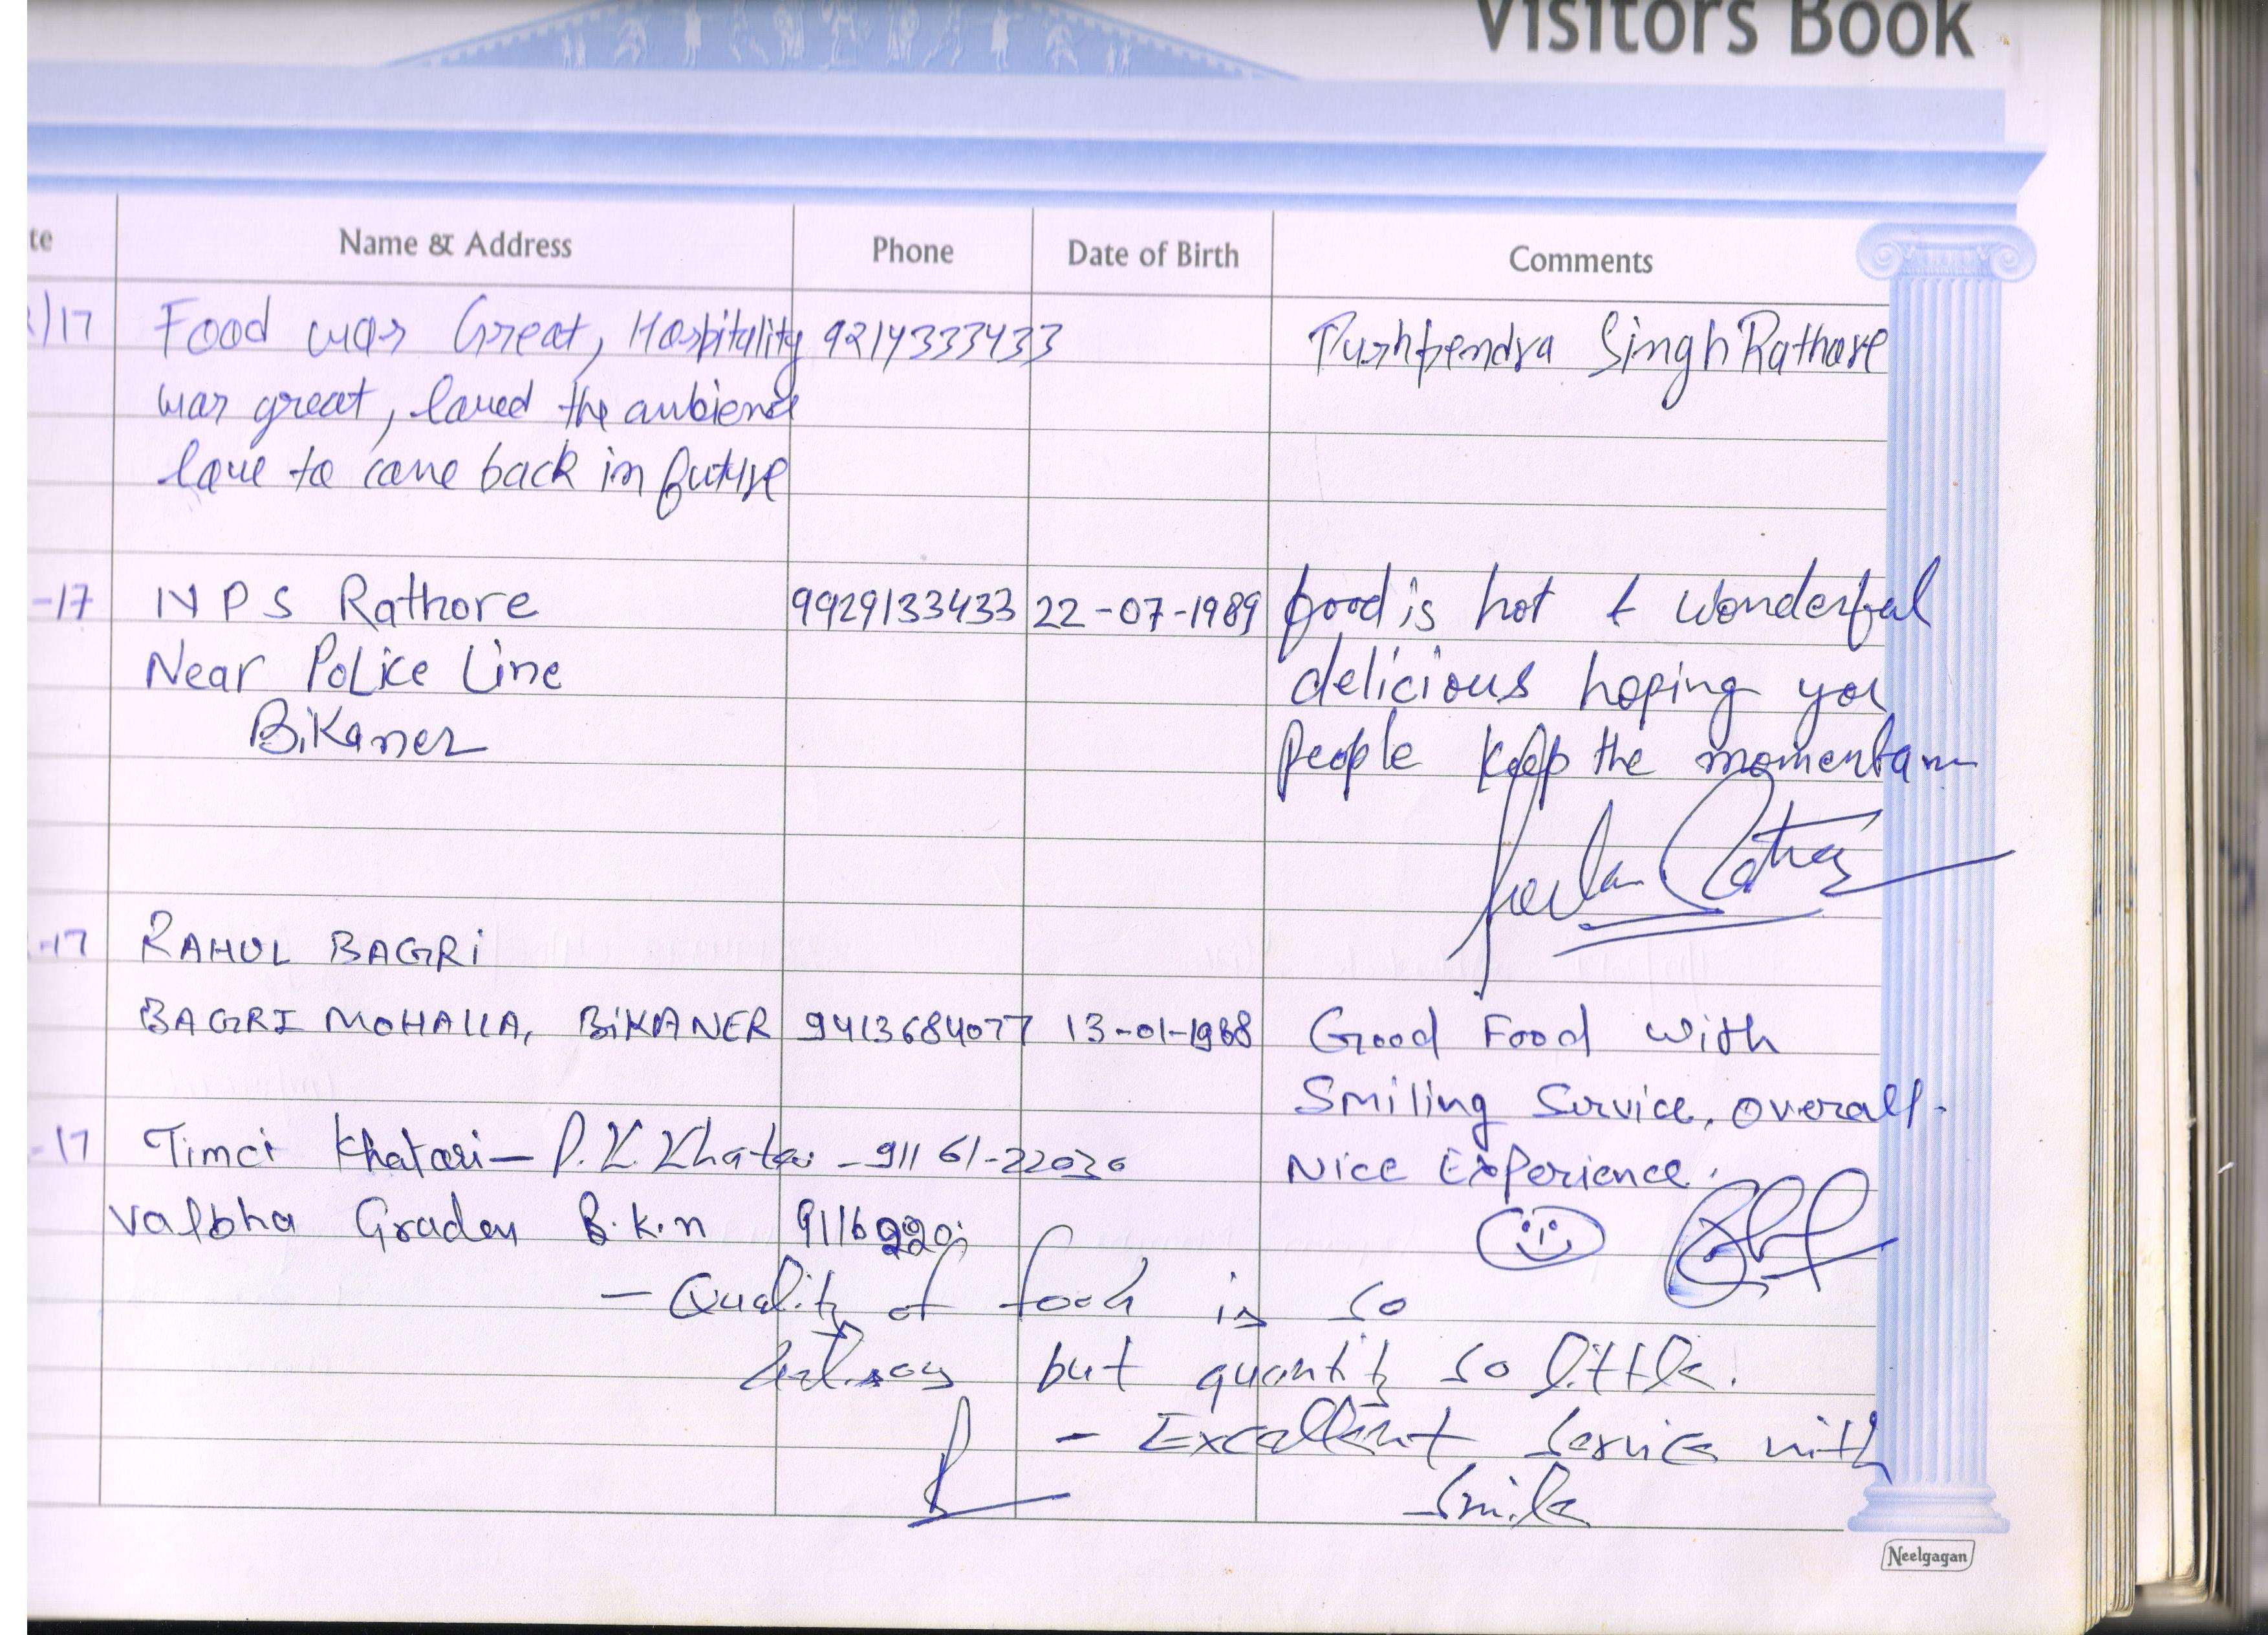 Visitors Book
te Name & Address Phone Date of Birth Comments
/17 Food was Great, Hospitality 9214333433 Pushpendra Singh Rathore
was great, loved the ambience
love to come back in future
-17 N P S Rathore 9929133433 22-07-1989 food is hot & wonderful
Near Police Line delicious hoping you
Bikaner people keep the momentam
-17 RAHUL BAGRI
BAGRI MOHALLA, BIKANER 9413684077 13-01-1988 Good Food with
Smiling Service, overall.
-17 Timci Khatari - P.K. Khatri - 91161-22030 Nice Experience.
Valbha Graden B.k.n 9116220
- Quality of food is so
but quantity so little.
- Excellent service with
smile
Neelgagan